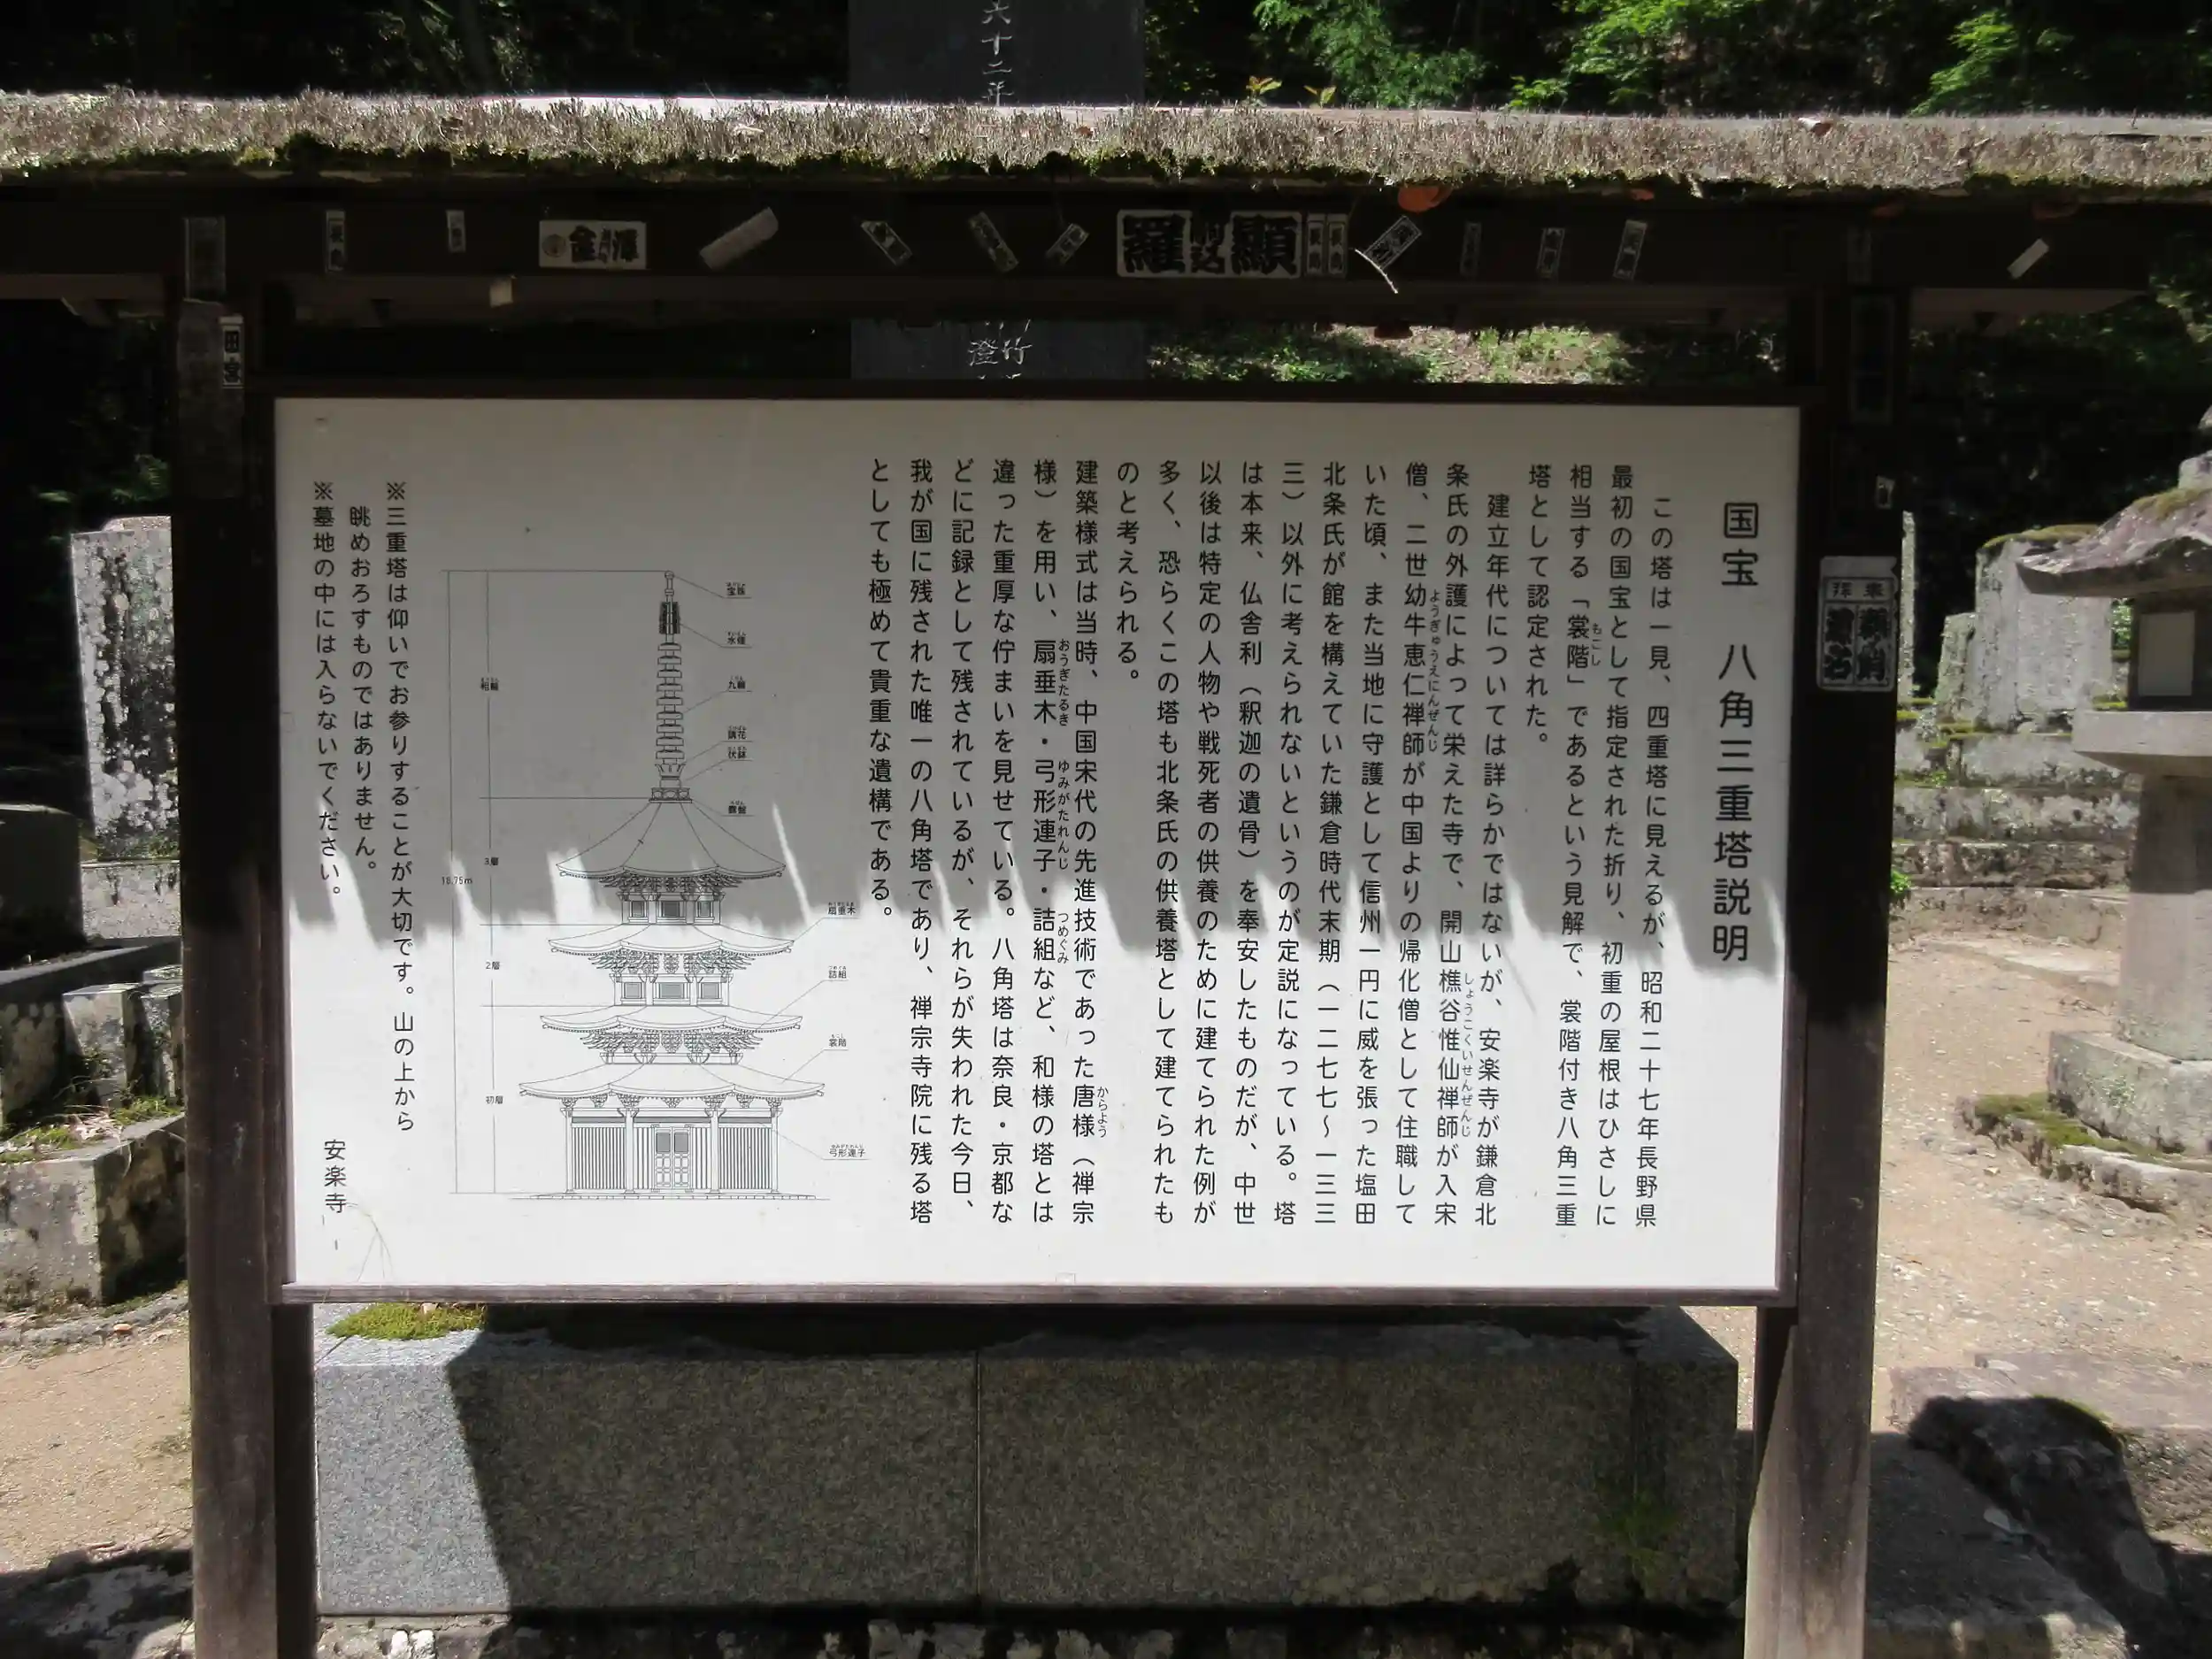 国宝 八角三重塔説明
この塔は一見、四重塔に見えるが、昭和二十七年長野県
最初の国宝として指定された折り、初重の屋根はひさしに
相当する「裳階」であるという見解で、裳階付き八角三重
もこし
塔として認定された。
建立年代については詳らかではないが、安楽寺が鎌倉北
条氏の外護によって栄えた寺で、開山樵谷惟仙禅師が入宋
しょうこくいせんぜんじ
僧、二世幼牛恵仁禅師が中国よりの帰化僧として住職して
ようぎゅうえにんぜんじ
いた頃、また当地に守護として信州一円に威を張った塩田
北条氏が館を構えていた鎌倉時代末期(一二七七~一三三
三)以外に考えられないというのが定説になっている。塔
は本来、仏舎利(釈迦の遺骨)を奉安したものだが、中世
以後は特定の人物や戦死者の供養のために建てられた例が
多く、恐らくこの塔も北条氏の供養塔として建てられたも
のと考えられる。
建築様式は当時、中国宋代の先進技術であった唐様(禅宗
からよう
様)を用い、扇垂木・弓形連子・詰組など、和様の塔とは
おうぎたるき ゆみがたれんじ つめぐみ
違った重厚な佇まいを見せている。八角塔は奈良・京都な
どに記録として残されているが、それらが失われた今日、
我が国に残された唯一の八角塔であり、禅宗寺院に残る塔
としても極めて貴重な遺構である。
宝珠
水煙
九輪
請花
伏鉢
露盤
相輪
3層
18.75m
扇垂木
2層
詰組
裳階
初層
弓形連子
※三重塔は仰いでお参りすることが大切です。山の上から
眺めおろすものではありません。
※墓地の中には入らないでください。
安楽寺
六十二年
竹
澄
金澤
羅
駒込
顯
田宮